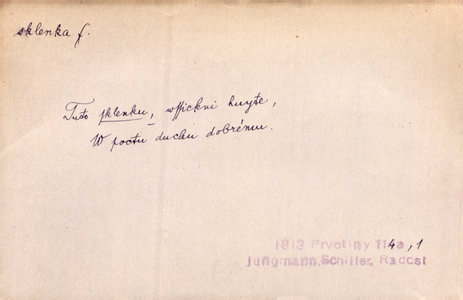 sklenka f.
Tuto sklenku, wssickni
W poctu duchu dobrému.
1813 Prvotiny 114a,1
Jungmann, Schiller, Radost